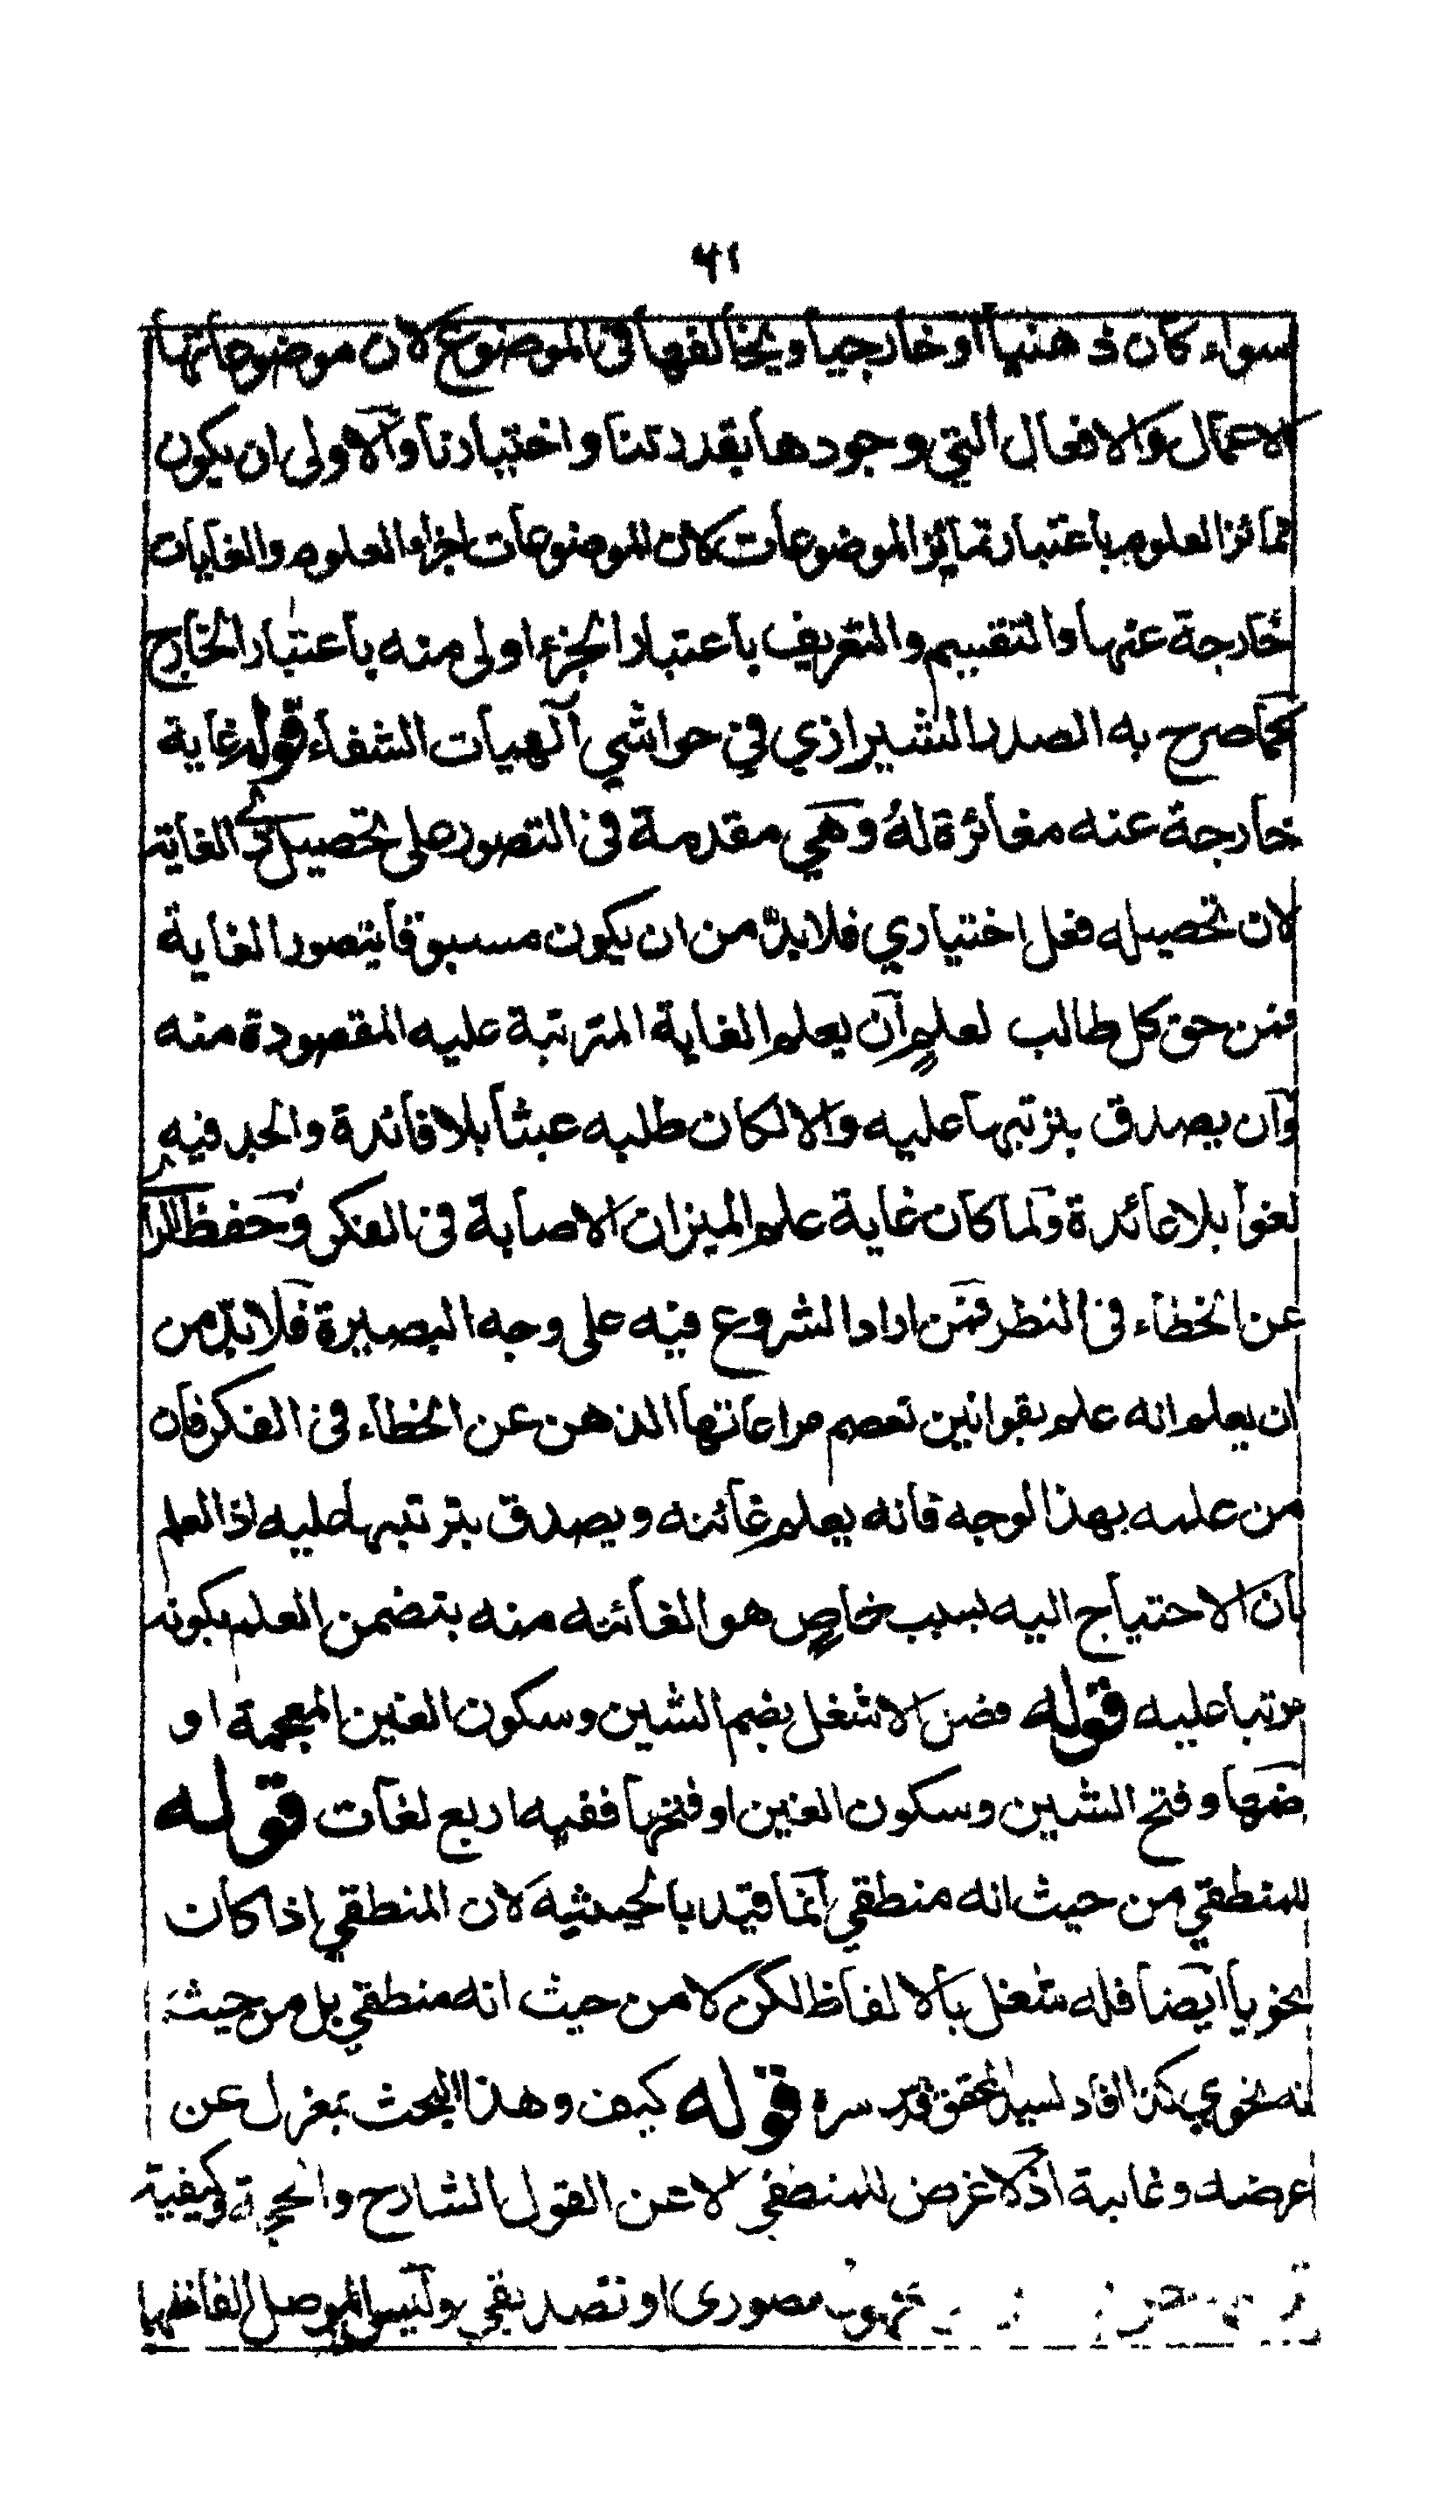 ٤١
سواء كان ذهنيا او خارجيا ويخالفها في الموضوع لان موضوعاتها
الاعمال والافعال التي وجودها بقدرتنا واختيارنا والاولى ان يكون
تمائز العلوم باعتبار تمائز الموضوعات لان الموضوعات اجزاء العلوم والغايات
خارجة عنها والتقسيم والتعريف باعتبار الجزء اولى منه باعتبار الخارج
كما صرح به الصدر الشيرازي في حواشي آلهيات الشفاء قوله غاية
خارجة عنه مغائرة له وهي مقدمة في التصور على تحصيل ذي الغاية
لان تحصيله فعل اختياري فلا بدّ من ان يكون مسبوقا بتصور الغاية
فمن حق كل طالب لعلمٍ ان يعلم الغاية المترتبة عليه المقصودة منه
وان يصدق بترتبها عليه والا لكان طلبه عبثا بلا فائدة والجد فيه
لغوا بلا عائدة ولما كان غاية علم الميزان الاصابة في الفكر وحفظ الرأي
عن الخطاء في النظر فمن اراد الشروع فيه على وجه البصيرة فلا بدّ من
ان يعلم انه علم بقوانين تعصم مراعاتها الذهن عن الخطاء في الفكر فان
من علمه بهذا الوجه فانه يعلم غائته ويصدق بترتبها عليه اذ العلم
بان الاحتياج اليه لسبب خاصٍ هو الغائته منه يتضمن العلم بكونه
مرتبا عليه قوله فضن الاشغل بضم الشين وسكون الغين المعجمة او
ضمها وفتح الشين وسكون الغين او فتحها ففيه اربع لغات قوله
للمنطقي من حيث انه منطقي انما قيد بالحيثية لان المنطقي اذا كان
نحويا ايضا فله شغل بالالفاظ لكن لا من حيث انه منطقي بل من حيث
انه نحوي كذا افاد السيد المحقق قدس سره قوله كيف وهذا البحث بمعزل عن
غرضه وغايته اذ لا غرض للمنطقي الا عن القول الشارح والحجة وكيفية
او تصديقي وليس الموصل الفاظها